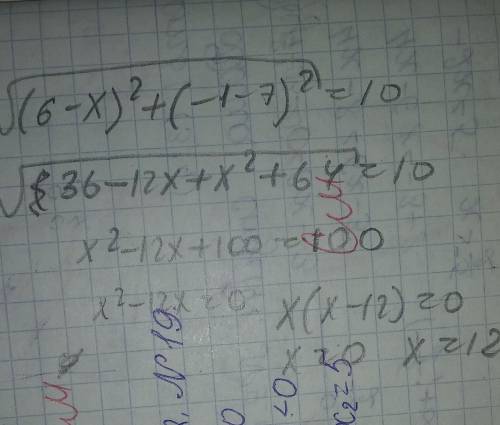 √((6-x)²+(-1-7)²) = 10
√(36-12x+x²+64) = 10
x²-12x+100 = 100
x²-12x=0 x(x-12)=0
x=0 x=12
N19
x₂=5